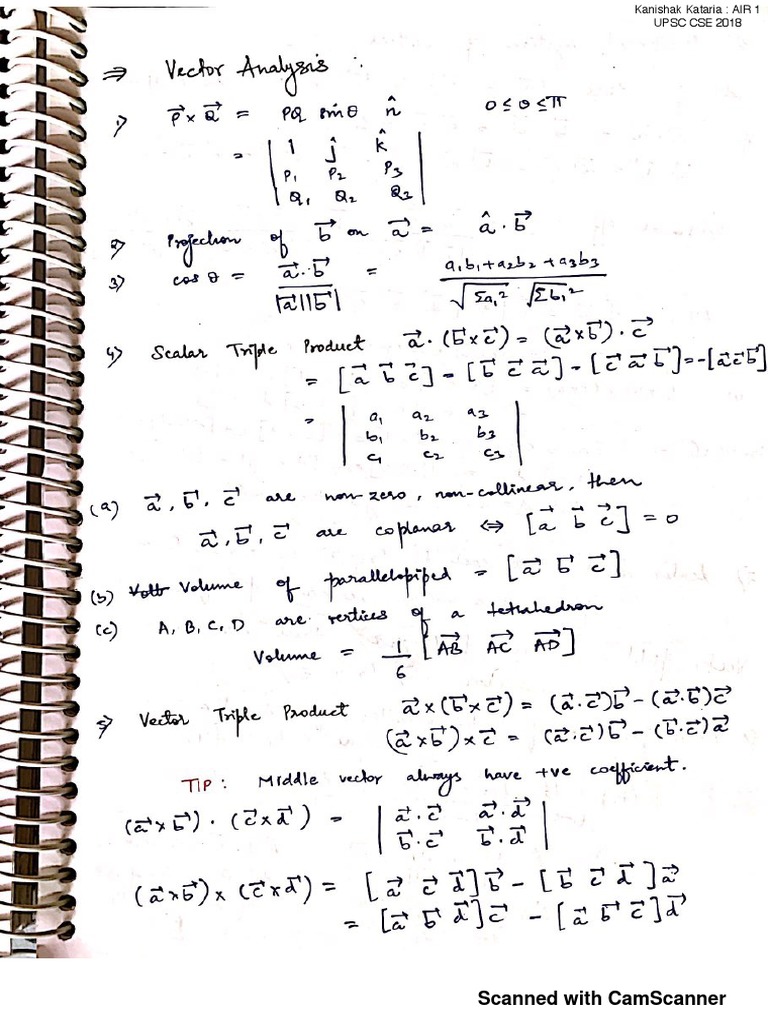 Kanishak Kataria : AIR 1
UPSC CSE 2018
⇒ Vector Analysis :
1) P⃗ × Q⃗ = PQ sinθ n̂    0 ≤ θ ≤ π
= | î ĵ k̂ |
| P₁ P₂ P₃ |
| Q₁ Q₂ Q₃ |
2) Projection of b⃗ on a⃗ = â · b⃗
3) cos θ = (a⃗ · b⃗) / (|a⃗||b⃗|) = (a₁b₁ + a₂b₂ + a₃b₃) / (√Σa₁² √Σb₁²)
4) Scalar Triple Product a⃗ · (b⃗ × c⃗) = (a⃗ × b⃗) · c⃗
= [a⃗ b⃗ c⃗] = [b⃗ c⃗ a⃗] = [c⃗ a⃗ b⃗] = -[a⃗ c⃗ b⃗]
= | a₁ a₂ a₃ |
| b₁ b₂ b₃ |
| c₁ c₂ c₃ |
(a) a⃗, b⃗, c⃗ are non-zero, non-collinear, then
a⃗, b⃗, c⃗ are coplanar ⇔ [a⃗ b⃗ c⃗] = 0
(b) Volume of parallelopiped = [a⃗ b⃗ c⃗]
(c) A, B, C, D are vertices of a tetrahedron
Volume = 1/6 [AB⃗ AC⃗ AD⃗]
5) Vector Triple Product a⃗ × (b⃗ × c⃗) = (a⃗ · c⃗)b⃗ - (a⃗ · b⃗)c⃗
(a⃗ × b⃗) × c⃗ = (a⃗ · c⃗)b⃗ - (b⃗ · c⃗)a⃗
TIP : Middle vector always have +ve coefficient.
(a⃗ × b⃗) · (c⃗ × d⃗) = | a⃗ · c⃗ a⃗ · d⃗ |
| b⃗ · c⃗ b⃗ · d⃗ |
(a⃗ × b⃗) × (c⃗ × d⃗) = [a⃗ c⃗ d⃗]b⃗ - [b⃗ c⃗ d⃗]a⃗
= [a⃗ b⃗ d⃗]c⃗ - [a⃗ b⃗ c⃗]d⃗
Scanned with CamScanner